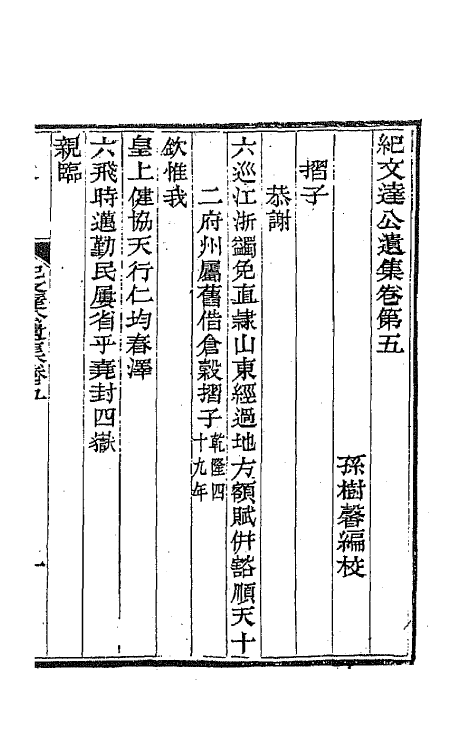 紀文達公遺集卷第五
孫樹馨編校
摺子
恭謝
六巡江浙蠲免直隷山東經過地方額賦併豁順天十
二府州屬舊借倉穀摺子乾隆四十九年
欽惟我
皇上健協天行仁均春澤
六飛時邁勤民屢省乎堯封四嶽
親臨
紀文達公遺集卷五
一